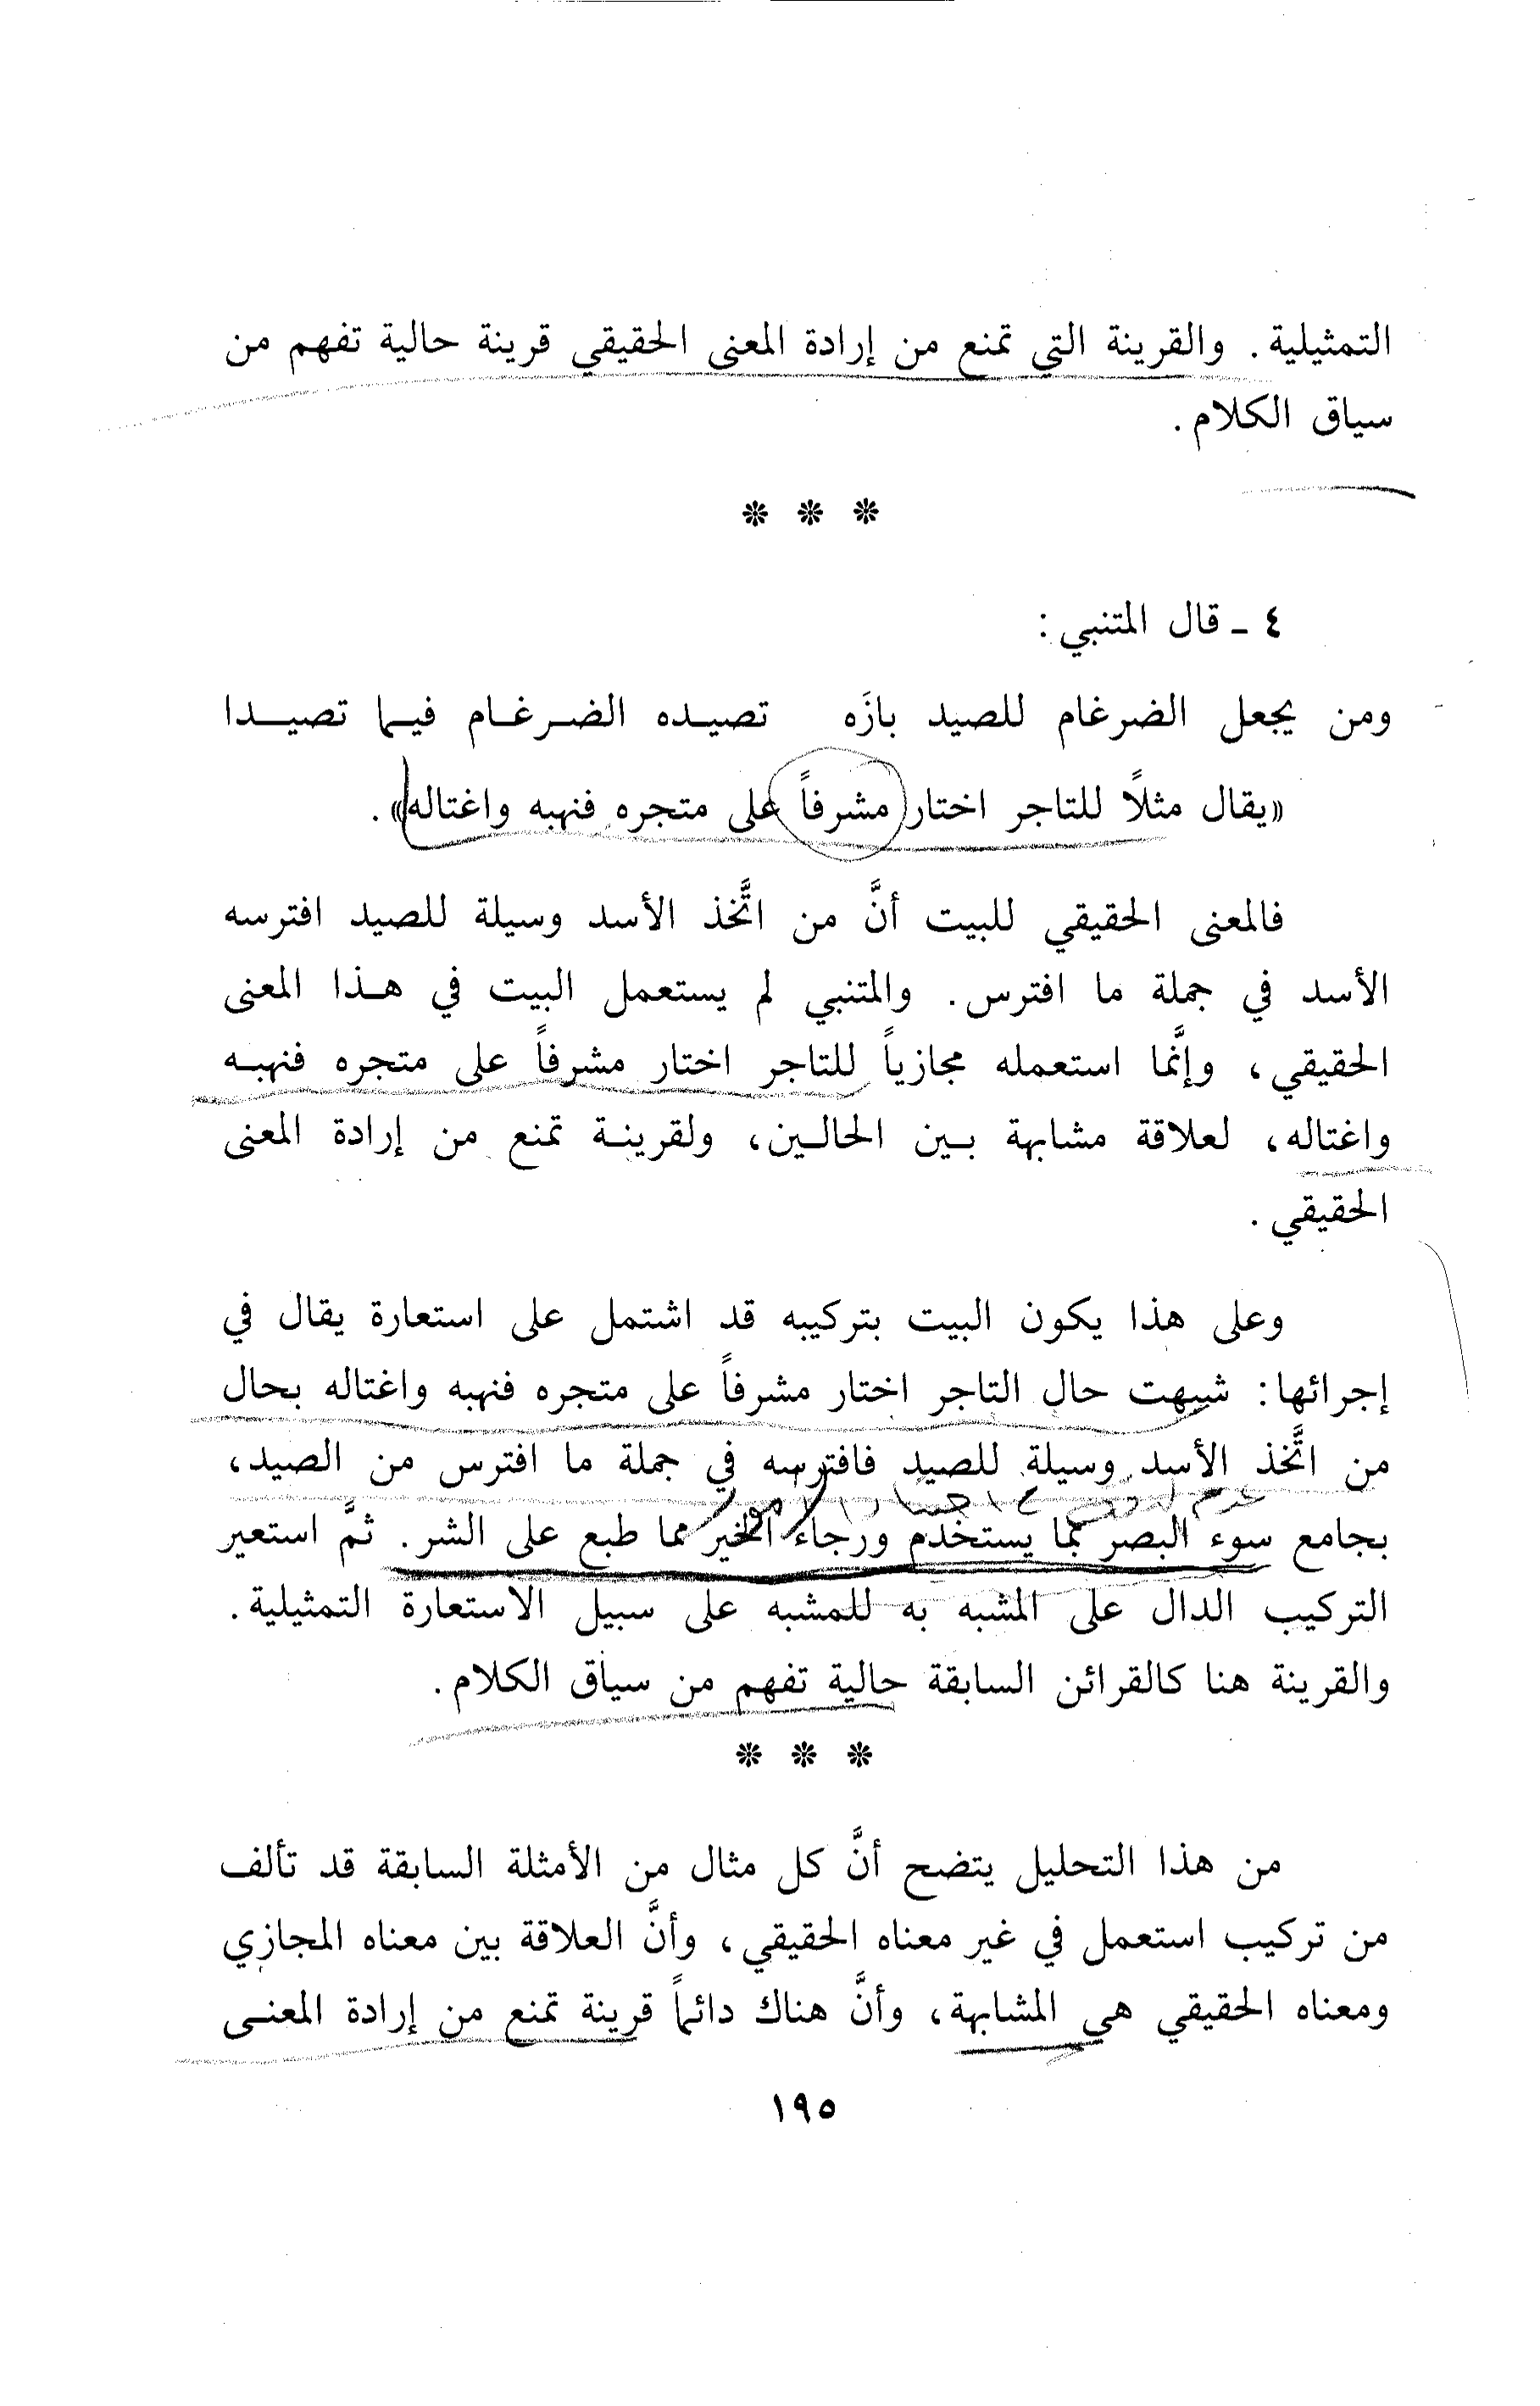 التمثيلية. والقرينة التي تمنع من إرادة المعنى الحقيقي قرينة حالية تفهم من
سياق الكلام.
* * *
٤ ـ قال المتنبي:
ومن يجعل الضرغام للصيد بازَه تصيده الضرغام فيما تصيدا
«يقال مثلاً للتاجر اختار مشرفاً على متجره فنهبه واغتاله».
فالمعنى الحقيقي للبيت أنَّ من اتَّخذ الأسد وسيلة للصيد افترسه
الأسد في جملة ما افترس. والمتنبي لم يستعمل البيت في هذا المعنى
الحقيقي، وإنَّما استعمله مجازياً للتاجر اختار مشرفاً على متجره فنهبه
واغتاله، لعلاقة مشابهة بين الحالين، ولقرينة تمنع من إرادة المعنى
الحقيقي.
وعلى هذا يكون البيت بتركيبه قد اشتمل على استعارة يقال في
إجرائها: شبهت حال التاجر اختار مشرفاً على متجره فنهبه واغتاله بحال
من اتَّخذ الأسد وسيلة للصيد فافترسه في جملة ما افترس من الصيد،
بجامع سوء البصر بما يستخدم ورجاء الخير مما طبع على الشر. ثمَّ استعير
التركيب الدال على المشبه به للمشبه على سبيل الاستعارة التمثيلية.
والقرينة هنا كالقرائن السابقة حالية تفهم من سياق الكلام.
* * *
من هذا التحليل يتضح أنَّ كل مثال من الأمثلة السابقة قد تألف
من تركيب استعمل في غير معناه الحقيقي، وأنَّ العلاقة بين معناه المجازي
ومعناه الحقيقي هي المشابهة، وأنَّ هناك دائماً قرينة تمنع من إرادة المعنى
١٩٥